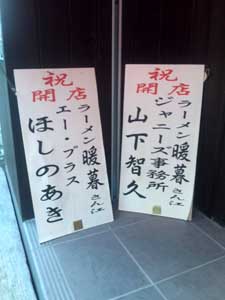 祝
開店
ラーメン暖暮さん江
ジャニーズ事務所
山下智久
祝
開店
ラーメン暖暮さん江
エー・プラス
ほしのあき